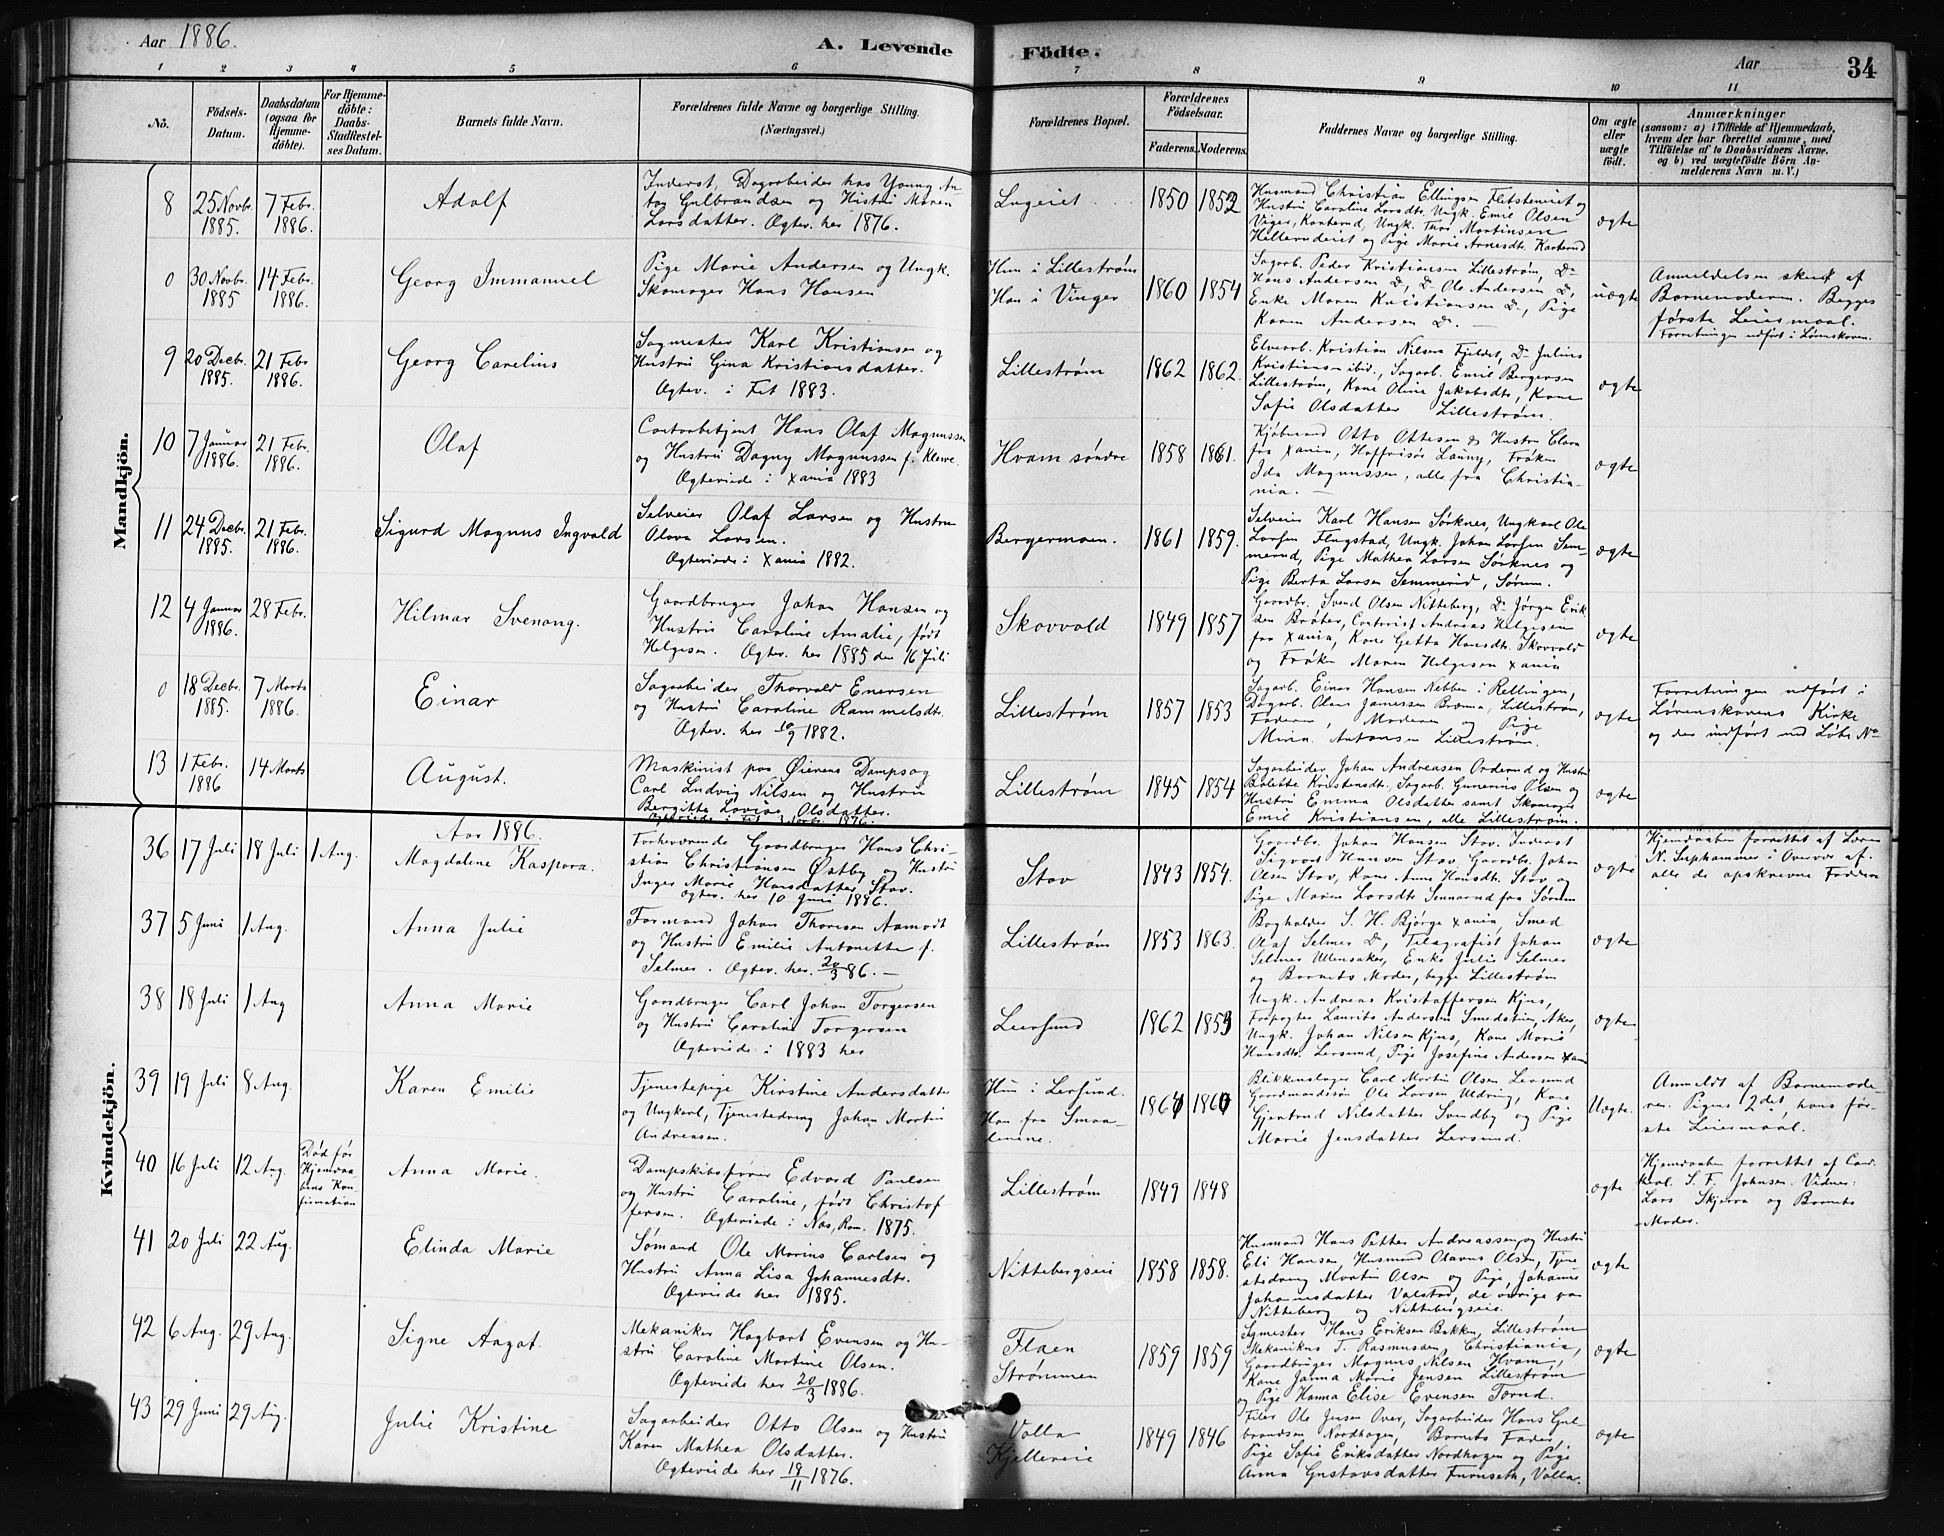 Aar 1886.
A. Levende Födte.
Aar
34
1 2 3 4 5 6 7 8 9 10 11
No.
Födsels-Datum.
Daabsdatum (ogsaa for Hjemme-döbte).
For Hjemme-döbte: Daabs-Stadfæstel-ses Datum.
Barnets fulde Navn.
Forældrenes fulde Navne og borgerlige Stilling. (Næringsvei.)
Forældrenes Bopæl.
Forældrenes Födselsaar.
Faderens. Moderens.
Faddernes Navne og borgerlige Stilling.
Om ægte eller uægte født.
Anmærkninger
(sansom: a) i Tilfælde af Hjemmedaab,
hvem der har forrettet samme, med
Tilföielse af to Daabsvidners Navne.
og b) ved uægtefödte Börn An-
melderens Navn m. V.)
Mandkjön.
8
25 Novbr. 1885.
7 Febr. 1886.
Adolf
Inderst, Dagarbeider hos Young An-
ton Gulbrandsen og Hustru Maren
Larsdatter. Ægtev. her 1876.
1850 1852
Husmand Christian Ellingsen
Hustru Caroline Larsdtr. Ungk. Emil Olsen
Ungk. Thor Martinsen
og Pige Marie Arnesdtr.
ægte
0
30 Novbr. 1885
14 Febr. 1886.
Georg Immanuel
Pige Marie Andersen og Ungk.
Skomager Hans Hansen
Hun i Lillestrøm
Han i Vinger
1860 1854
Sagarb. Peder Kristiansen Lillestrøm, Do
Hans Andersen Do, Do Ole Andersen Do,
Enke Maren Kristiansen Do, Pige
Karen Andersen Do. —
uægte
Anmeldelsen skend af
Barnemoderen. Begges
første Leiermaal.
Forretningen udført i Lørenskoven.
9
20 Decbr. 1885.
21 Febr 1886.
Georg Carelius
Sagmester Karl Kristiansen og
Hustru Gina Kristiansdatter.
Ægtev. i Fet 1883.
Lillestrøm
1862 1862.
Elvearb. Kristian Nilsen Fjeldet, Do Julius
Kristiansen ibid., Sagarb. Emil Bergersen
Lillestrøm, Kone Oline Jakobsdtr, Kone
Sofie Olsdatter Lillestrøm.
ægte
10
7 Januar 1886.
21 Febr. 1886.
Olaf
Contorbetjent Hans Olaf Magnussen
og Hustru Dagny Magnussen f. Klewe.
Ægteviede i Xania 1883
Hvam søndre
1858 1861.
Kjøbmand Otto Ottesen & Hustru Clara
fra Xania, Frøken
Ida Magnussen, alle fra Christia-
nia. —
ægte
11
24 Decbr. 1885.
21 Febr. 1886.
Sigurd Magnus Ingvald
Selveier Olaf Larsen og Hustru
Olava Larsen.
Ægteviede i Xania 1882.
Bergermoen.
1861 1859.
Selveier Karl Hansen Sørknes, Ungkarl Ole
Larsen Flugstad, Ungk. Johan Larsen Sem-
merud, Pige Mathea Larsen Sørknes og
Pige Berta Larsen Semmerud, Sørum.
ægte
12
4 Januar 1886.
28 Febr.
Hilmar Svenang.
Gaardbruger Johan Hansen og
Hustru Caroline Amalie, født
Helgesen. Ægtev. her 1885 den 16 Juli
Skovvold
1849 1857
Gaardbr. Svend Olsen Nitteberg, Do Jørgen Erik-
sen Bråter, Contorist Andreas Helgesen
fra Xania, Kone Getta Hansdtr. Skovvold
og Frøken Maren Helgesen Xania
ægte
0
18 Decbr. 1885.
7 Marts 1886.
Einar
Sagarbeider Thorvald Enersen
og Hustru Caroline Rammelsdtr.
Ægtev. her 10/9 1882.
Lillestrøm
1857 1853
Sagarb. Einar Hansen Nebben i Rellingen,
Dagarb. Olaus Janessen Broma, Lillestrøm,
Faderen, Moderen og Pige
Mina Antonsen Lillestrøm.
ægte
Forretningen udført i
Lørenskovens Kirke
og der indført med Løbe No
13
1 Febr. 1886
14 Marts
August.
Maskinist paa Øierens Dampsag
Carl Ludvig Nilsen og Hustru
Bergitte Lovise Olsdatter.
Lillestrøm
1845 1854
Sagarbeider Johan Andreasen Orderud og Hustru
Bolette Kristensdtr. Sagarb. Gunerius Olsen og
Hustru Emma Olsdatter samt Skomager
Emil Kristiansen, alle Lillestrøm.
ægte
Kvindekjön.
Aar 1886.
36
17 Juli
18 Juli
1 Aug.
Magdaline Kaspora.
Forhenværende Gaardbruger Hans Chri-
stian Christiansen Østby og Hustru
Inger Marie Hansdatter Stav.
Ægtev. her 10 Juni 1886.
Stav
1843 1854.
Gaardbr. Johan Hansen Stav, Inderst
Sigvart Hansen Stav, Gaardbr. Johan
Olsen Stav, Kone Anne Hansdtr. Stav og
Pige Maren Larsdtr Sennerud fra Sørum
ægte
Hjemdaaben forrettet af Loren
N. Suphammer i Overvær af
alle de opskrevne Faddere
37
5 Juni
1 Aug.
Anna Julie
Formand Johan Thoresen Aamodt
og Hustru Emilie Antonette f.
Selmer. Ægtev. her 20/3 86. —
Lillestrøm
1853 1863.
Bogholder S. H. Bjørge Xania, Smed
Olaf Selmer Do, Telegrafist Johan
Selmer Ullensaker, Enke Julie Selmer
og Barnets Moder, begge Lillestrøm
ægte
38
18 Juli
1 Aug
Anna Marie
Gaardbruger Carl Johan Torgersen
og Hustru Caroline Torgersen
Ægteviede i 1883 her
Leersund
1862 1853
Ungk. Andreas Kristoffersen Kjus,
Forpagter Laurits Andersen Smedstuen, Aker,
Ungk. Johan Nilsen Kjus, Kone Marie
Hansdtr. Lersund, Pige Josefine Andersen Xania
ægte
39
19 Juli
8 Aug.
Karen Emilie
Tjenestepige Kirstine Andersdatter
og Ungkarl, Tjenestedreng Johan Martin
Andreasen.
Hun i Lersund.
Han fra Smaa-
lenene.
1867 1860
Blikkenslager Carl Martin Olsen Lersund
Gaardmandssøn Ole Larsen Uldring, Kone
Gjertrud Nilsdatter Sundby og Pige
Marie Jensdatter Lersund.
Uægte.
Anmeldt af Barnemode-
ren. Pigens 2det, hans før-
ste Leiermaal.
40
16 Juli
12 Aug.
Død før
Hjemdaa-
bens Kon-
firmation
Anna Marie.
Dampskibsfører Edvard Paulsen
og Hustru Caroline, født Christof
fersen. Ægteviede i Nas, Rom. 1875.
Lillestrøm
1849 1848
ægte
Hjemdaaben forrettet af
S. F. Johnsen. Vidner:
Lars Skjerva og Barnets
Moder.
41
20 Juli
22 Aug.
Elinda Marie
Sømand Ole Marius Carlsen og
Hustru Anna Lisa Johannesdtr.
Ægteviede her 1885.
Nittebergseie
1858 1858.
Husmand Hans Petter Andreassen og Hustru
Eli Hansen, Husmand Olavus Olsen, Tjene-
stedreng Martin Olsen og Pige, Johanne
Johannesdatter Valstad, de øvrige paa
Nitteberg og Nittebergseie.
ægte
42
6 Aug.
29 Aug.
Signe Aagot.
Mekaniker Hagbart Evensen og Hu-
stru Caroline Martine Olsen.
Ægteviede her 20/3 1886.
Flaen
Strømmen
1859 1859
Sagmester Hans Eriksen Bakken, Lillestrøm
Mekanikus T. Rasmussen, Christiania,
Gaardbruger Magnus Nilsen Hvam,
Kone Janna Marie Jensen Lillestrøm
og Pige Hanna Elise Evensen Torud.
ægte
43
29 Juni
29 Aug.
Julie Kristine
Sagarbeider Otto Olsen og Hustru
Karen Mathea Olsdatter.
Ægteviede her 19/11 1876.
Volla
Kjellereie
1849 1846
Filer Ole Jensen Over, Sagarbeider Hans Gul-
brandsen Nordhagen, Barnets Fader,
Pige Sofie Eriksdatter Nordhagen og Pige
Anna Gustavsdatter Furuseth, Volla.
ægte